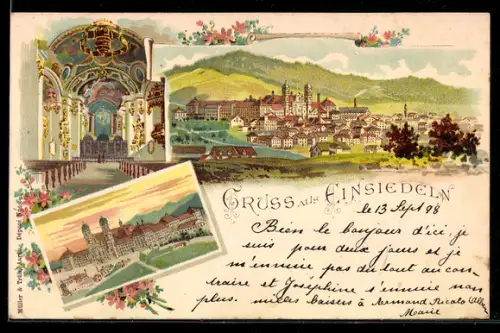 Gruss aus Einsiedeln
le 13 Sept 98
Bien le bonjour d'ici, je
suis pour deux jours et je
m'ennuie pas du tout au con-
traire et Joséphine s'ennuie non
plus. milles baisers à Armand Ricola
Marie
Müller & Trüb, Aarau,